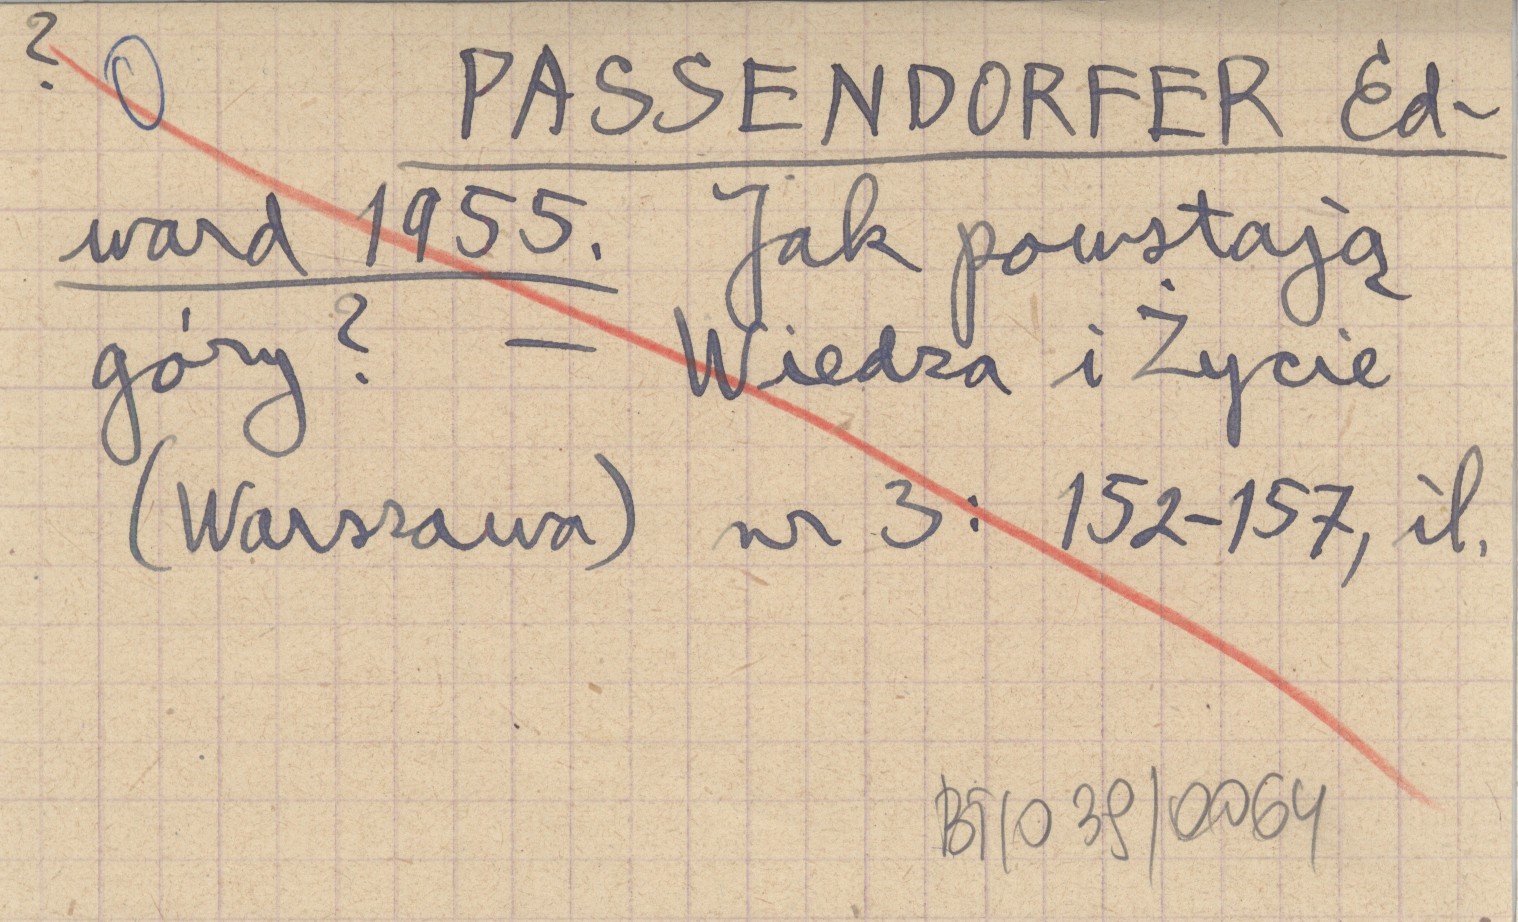 ? O PASSENDORFER Ed-
ward 1955. Jak powstają
góry? — Wiedza i Życie
(Warszawa) nr 3: 152-157, il.
BT/039/0064